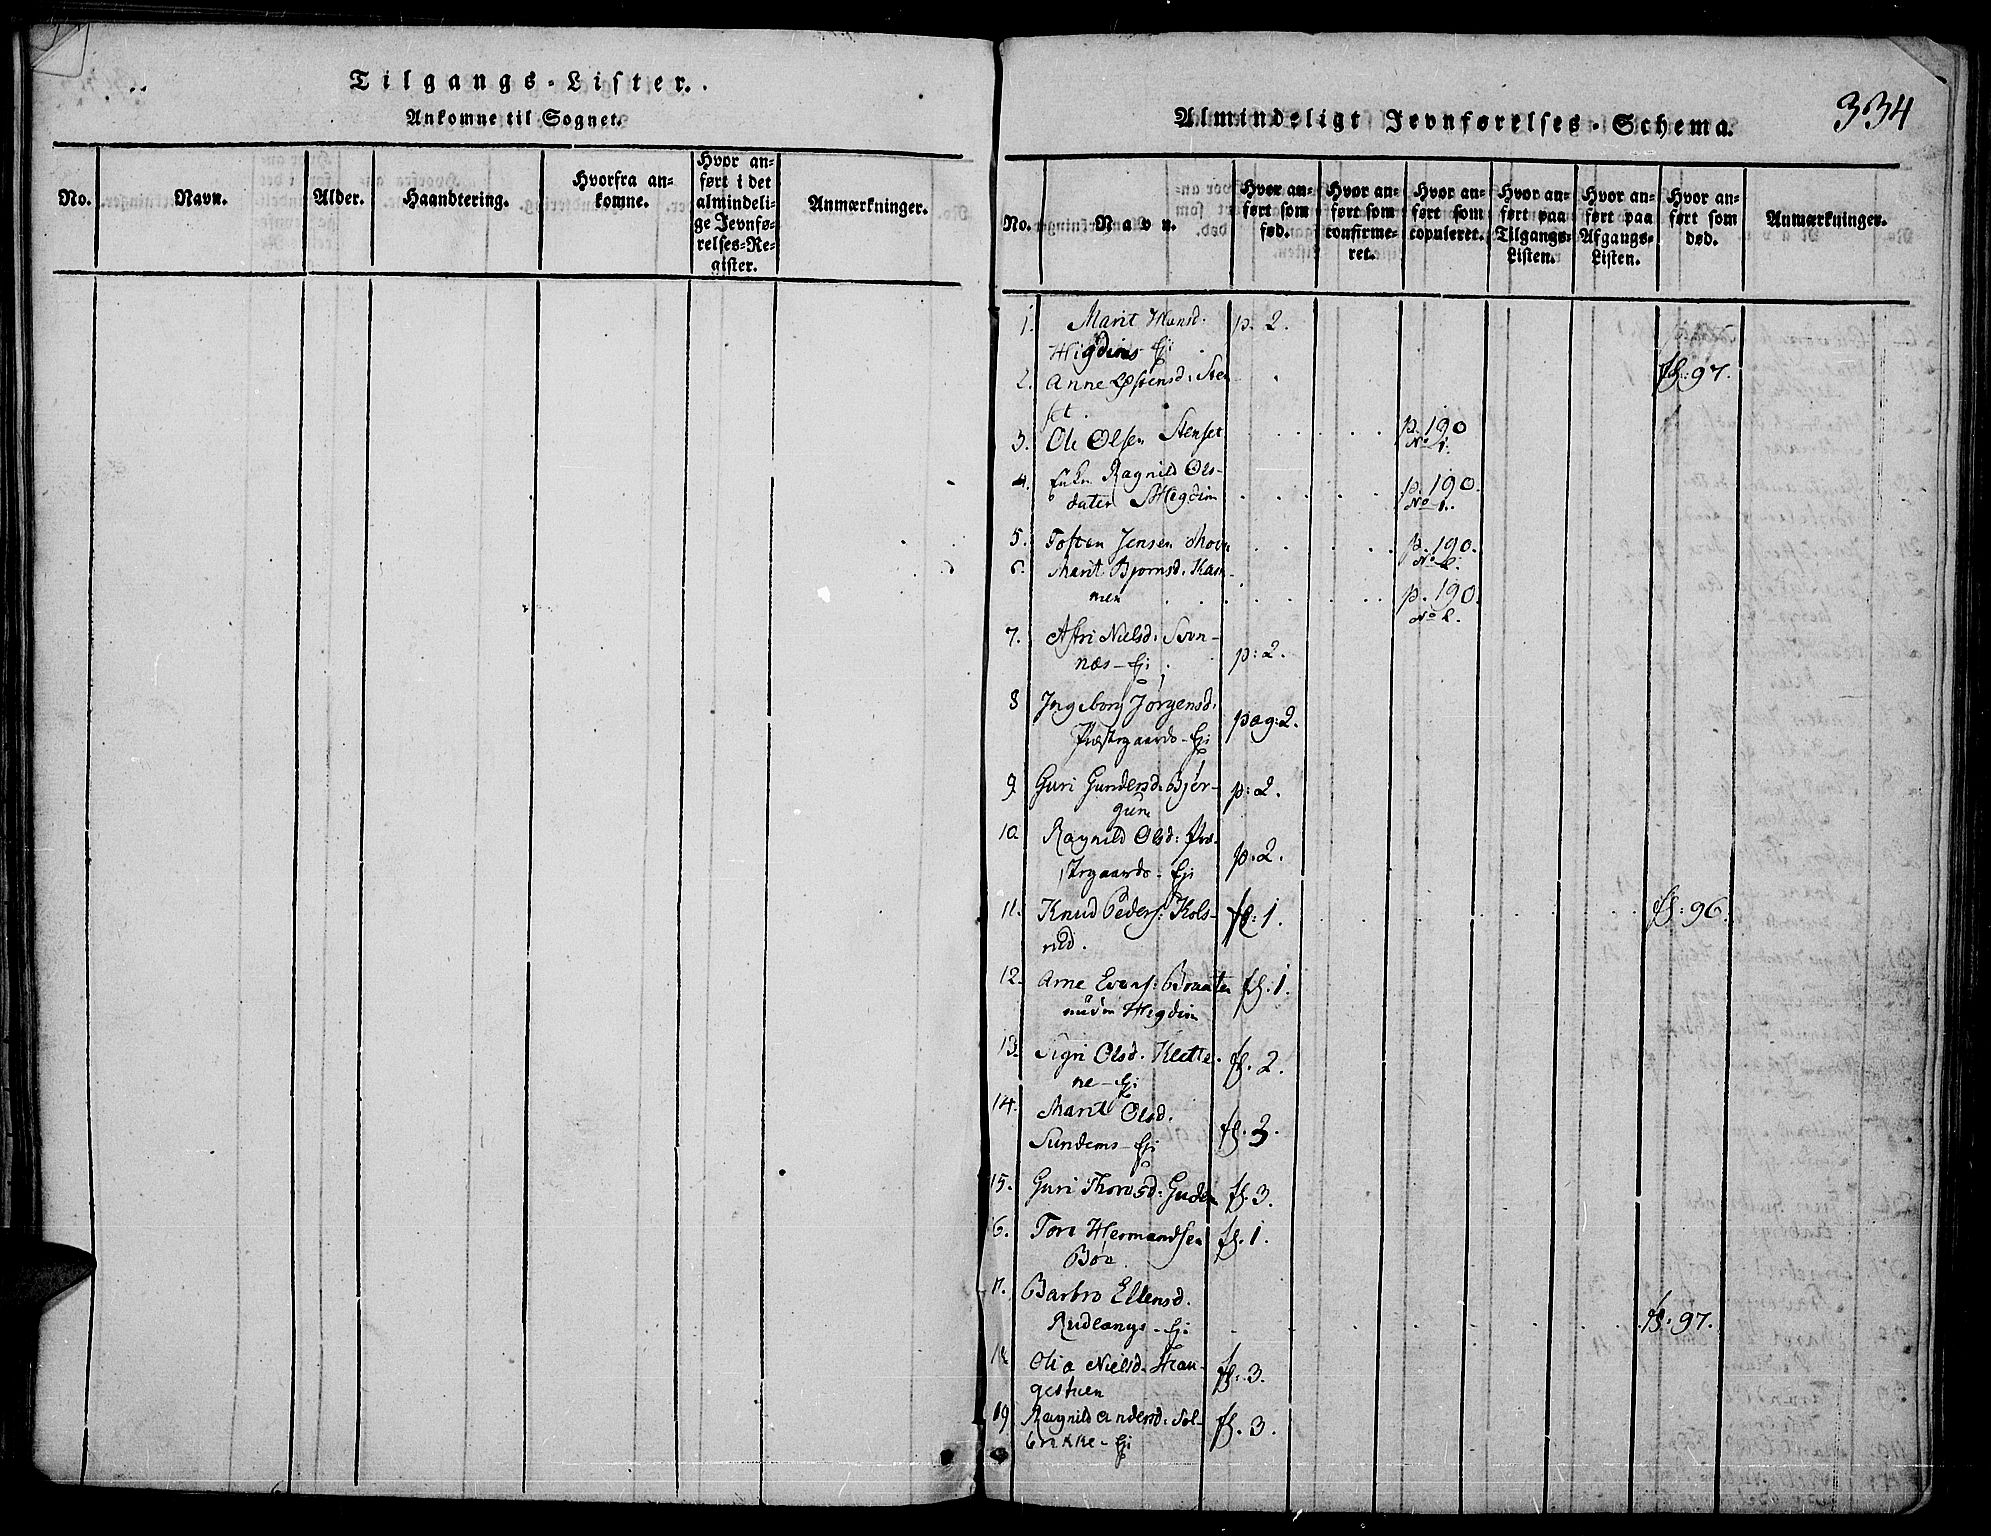 Tilgangs-Lister.
Ankomne til Sognet.
No.
Navn.
Alder.
Haandtering.
Hvorfra an-
komne.
Hvor an-
ført i det
almindeli-
ge Jevnfø-
relses-Re-
gister.
Anmærkninger.
334
Almindeligt Jevnførelses-Schema.
No.
Navn.
Hvor an-
ført som
fød.
Hvor an-
ført som
confirme-
ret.
Hvor an-
ført som
copuleret.
Hvor an-
ført paa
Tilgangs-
Listen.
Hvor an-
ført paa
Afgangs-
Listen.
Hvor an-
ført som
død.
Anmærkninger.
1. Marit Hansd. p. 2.
Hegdins - Eji
2. Anne Østensd: Sten fl: 97.
set.
3. Ole Olsen Stenset p. 190
No 1.
4. Ragnild Ols- p. 190.
dater Hegdin No 1.
5. Tosten Jensen Moen p. 190.
No 2.
6. Marit Bjørnsd. Ham-
men p. 190.
No 2.
7. Astri Nielsd:
næs - Eji p: 2.
8 Ingeborg Jørgensd:
Præstegaards - Eji pag: 2.
9 Guri Gundersd. Bjør- p: 2.
gum
10 Ragnild Olsd: Præ-
stegaards - Eji p. 2.
11. Knud Peders: Kols- fl: 1. fl: 96.
rud.
12. Arne Evens: Braaten fl. 1.
under Hegdin
13. Sigri Olsd. Klette- fl. 2.
ne - Eji
14. Marit Olsd.
Sundems - Eji fl. 3.
15. Guri Thoresd: Guden fl. 3.
16. Tore Hermandsen fl. 1.
Bøe.
17. Barbro Ellensd.
Rudlangs - Eji fl. 97.
18 Olia Nielsd. Hau- fl: 3.
gestuen
19 Ragnild Andersd: Sol- fl. 3.
brække - Eji